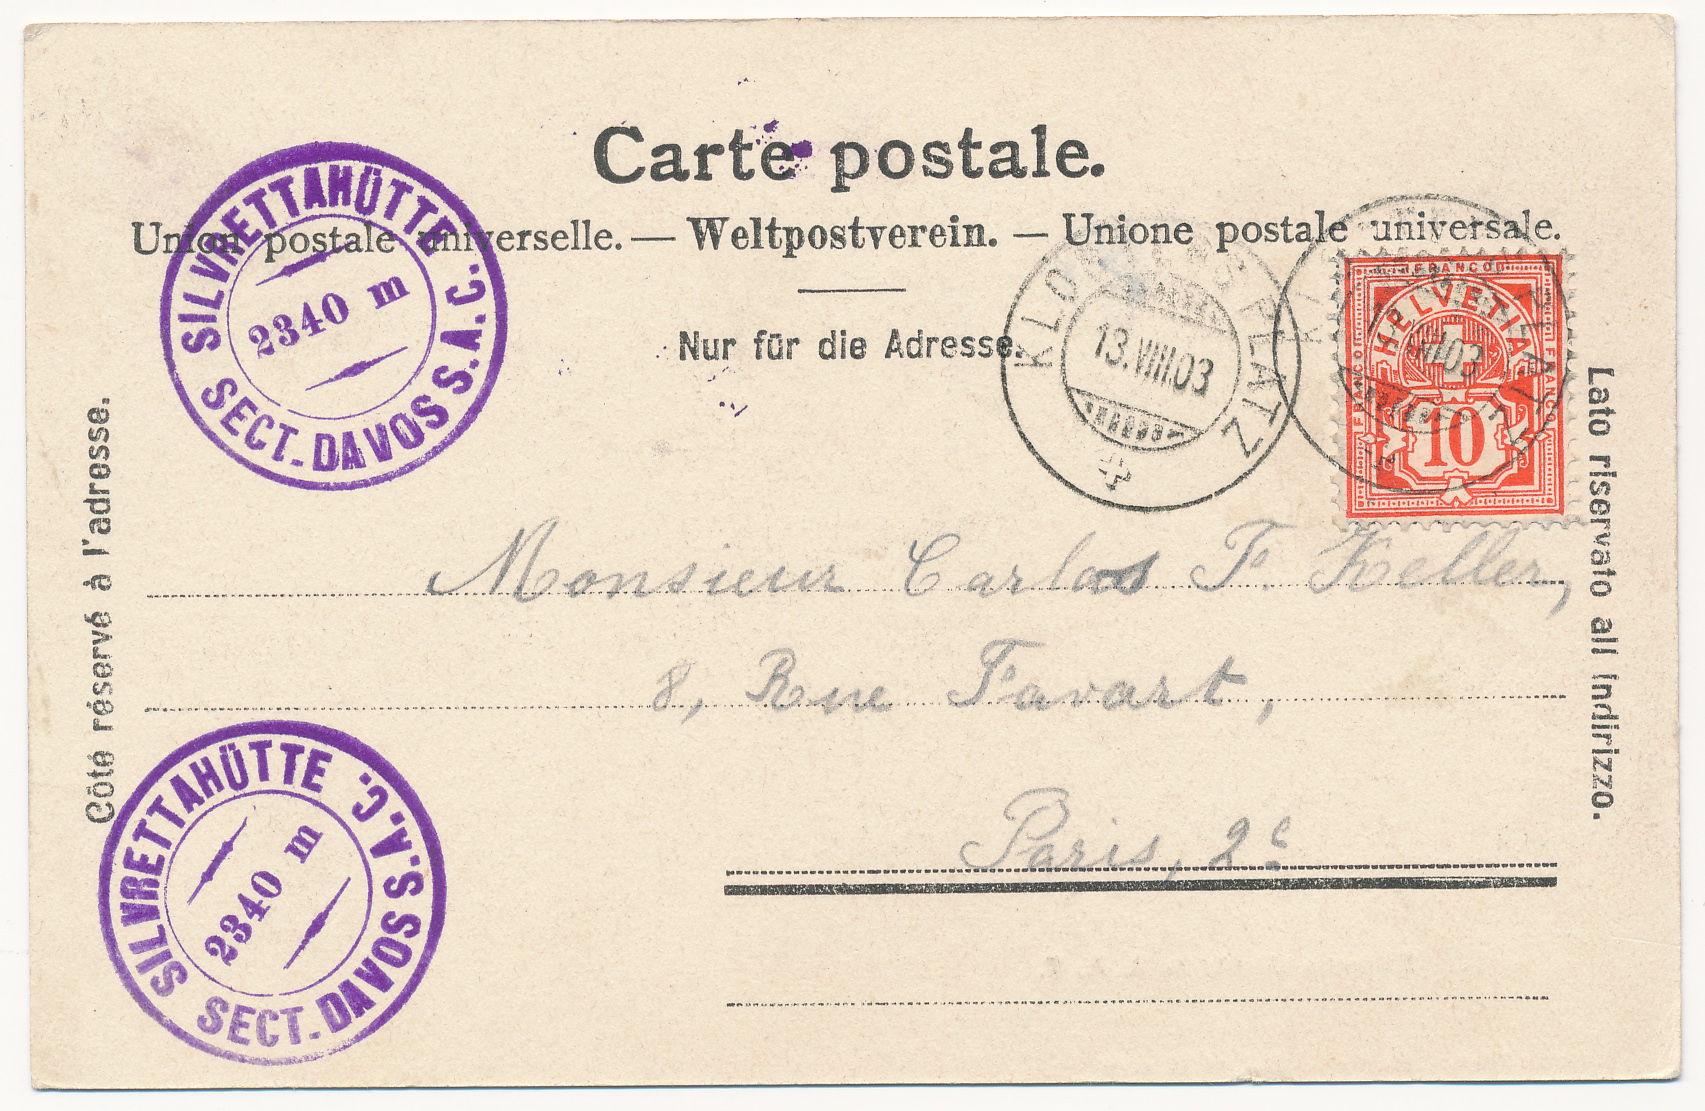 Carte postale.
Union postale universelle. — Weltpostverein. — Unione postale universale.
Nur für die Adresse.
Côté réservé à l'adresse.
Lato riservato all indirizzo.
SILVRETTAHÜTTE S.A.C.
2340 m
SECT. DAVOS
KLOSTERS PLATZ
13.VIII.03
FRANCO
HELVETIA
FRANCO
FRANCO
10
Monsieur Carlos F. Keller,
8, Rue Favart,
Paris, 2e
SILVRETTAHÜTTE S.A.C.
2340 m
SECT. DAVOS